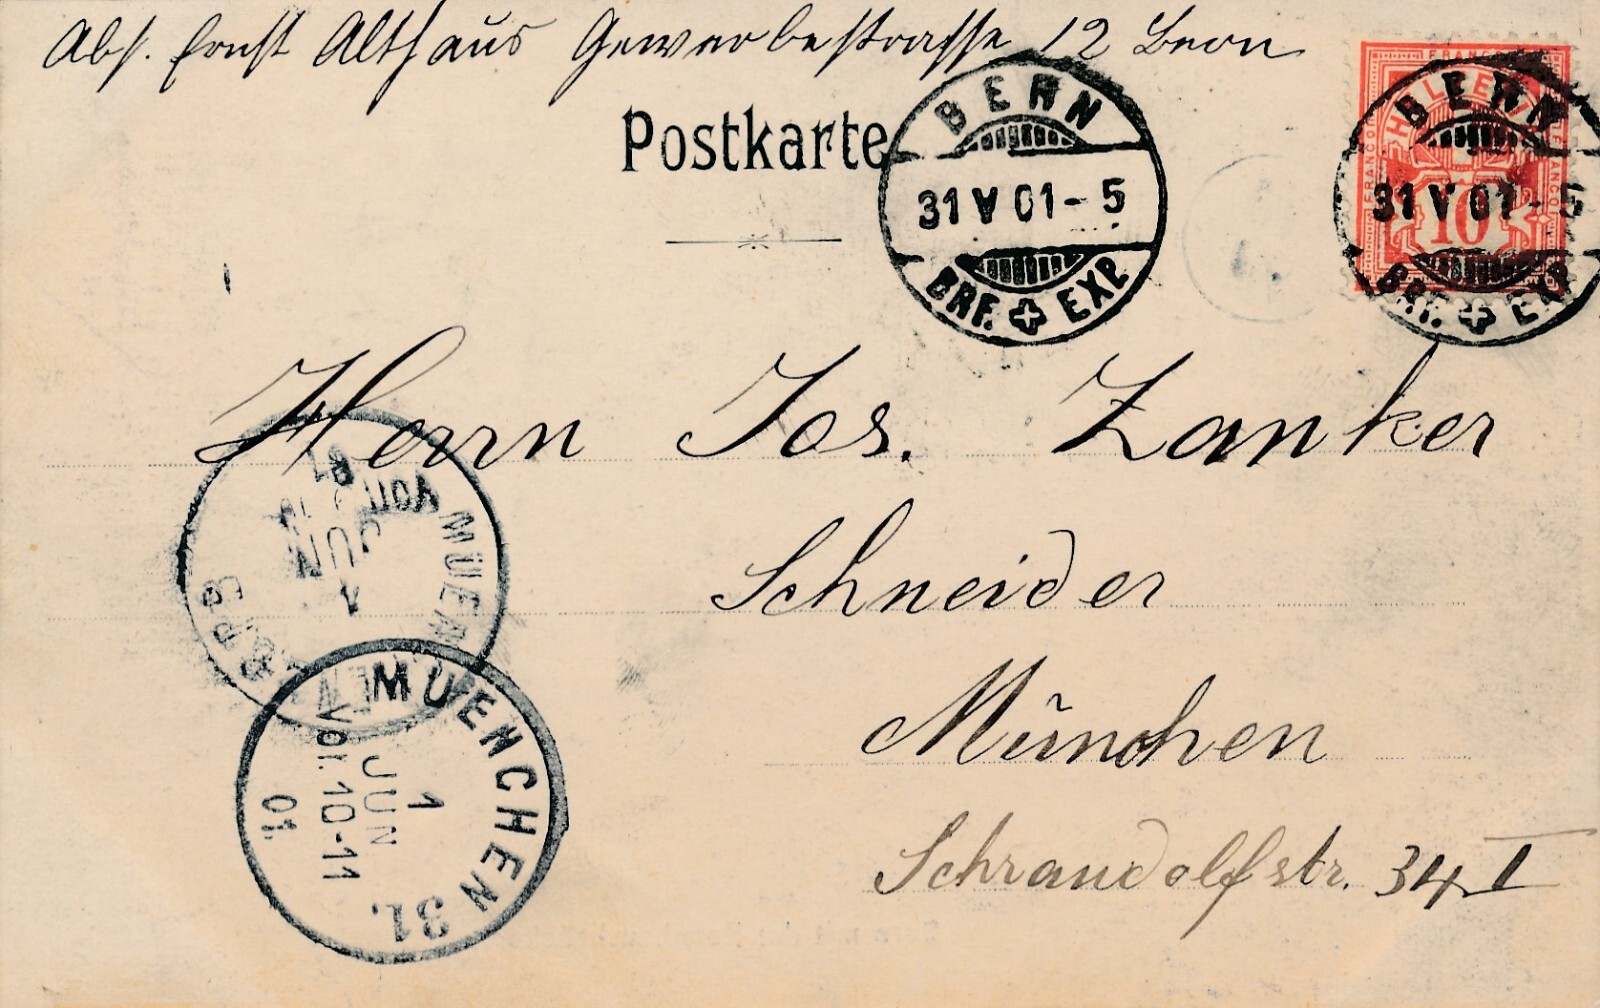 Abs. Ernst Althaus Gewerbestrasse 12 Bern
Postkarte
BERN
31 V 01-5
BRF. EXP.
FRANCO
HELVETIA
FRANCO
FRANCO
10
BERN
31 V 01-5
BRF. EXP.
Herrn Jos. Zanker
Schneider
München
Schraudolfstr. 34 I
01
JUN
1
MUENCHEN 31.
1
JUN
Vor. 10-11
01.